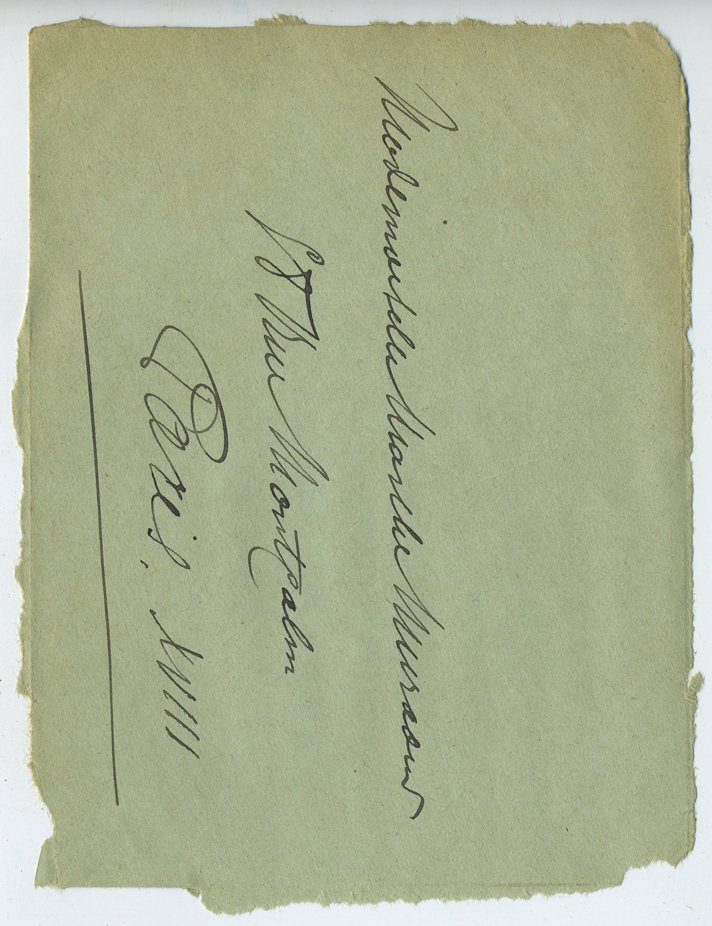 Mademoiselle Marthe Mursaud
Rue Montcalm
Paris. XVIII